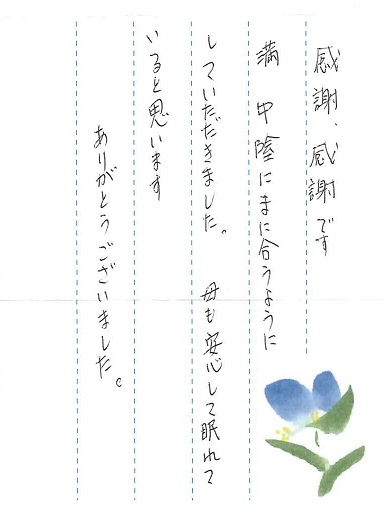 感謝、感謝です
満 中陰にまに合うように
していただきました。 母も安心して眠れて
いると思います
ありがとうございました。